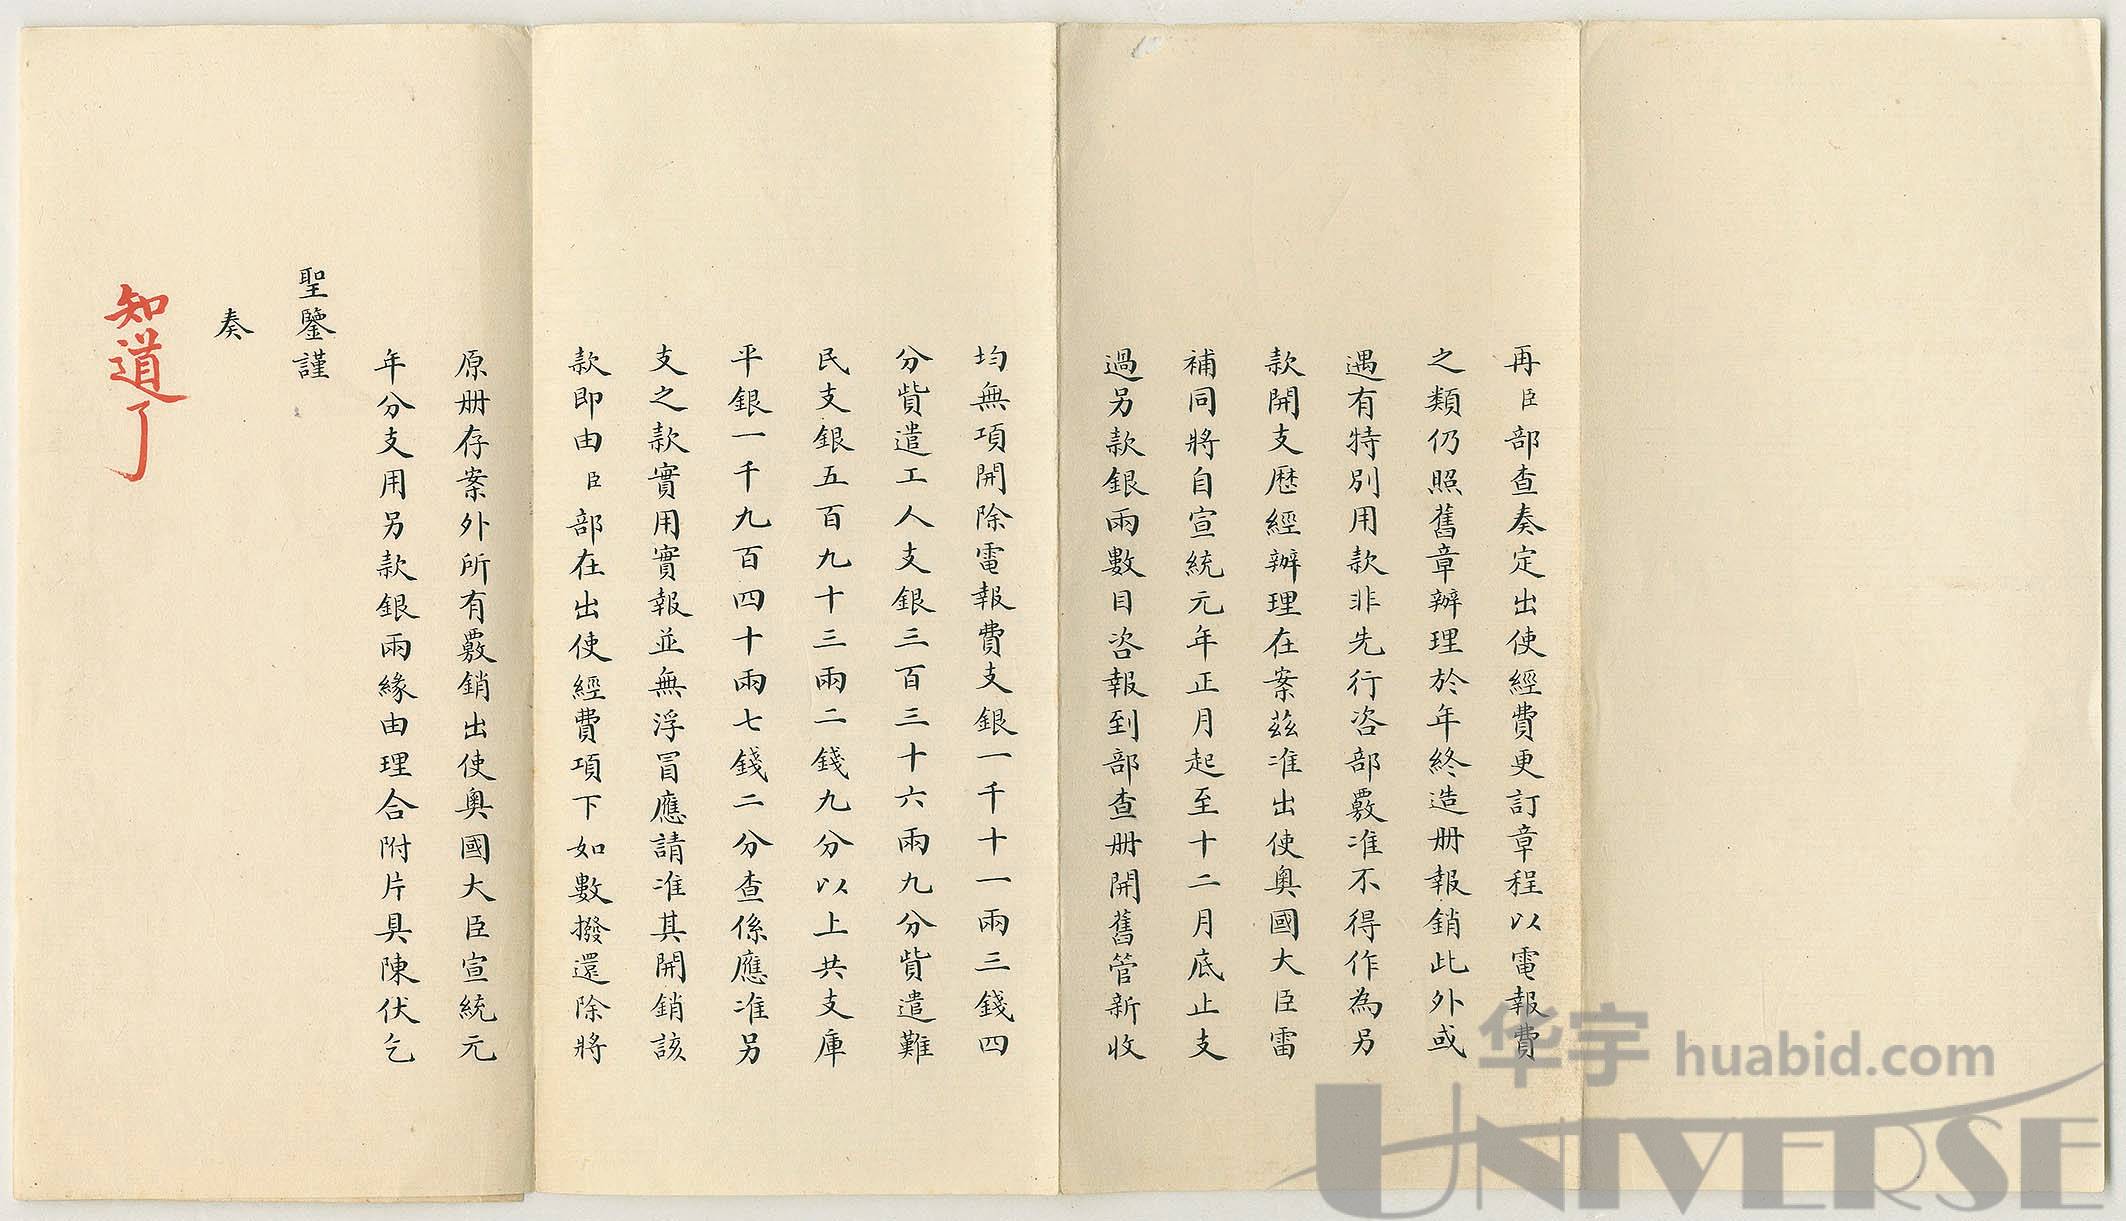 再臣部查奏定出使經費更訂章程以電報費
之類仍照舊章辦理於年終造册報銷此外或
遇有特別用款非先行咨部覈准不得作為另
款開支歷經辦理在案茲准出使奧國大臣雷
補同將自宣統元年正月起至十二月底止支
過另款銀兩數目咨報到部查册開舊管新收
均無項開除電報費支銀一千十一兩三錢四
分貲遣工人支銀三百三十六兩九分貲遣難
民支銀五百九十三兩二錢九分以上共支庫
平銀一千九百四十兩七錢二分查係應准另
支之款實用實報並無浮冒應請准其開銷該
款即由臣部在出使經費項下如數撥還除將
原册存案外所有覈銷出使奧國大臣宣統元
年分支用另款銀兩緣由理合附片具陳伏乞
聖鑒謹
奏
知道了
华宇 huabid.com
UNIVERSE